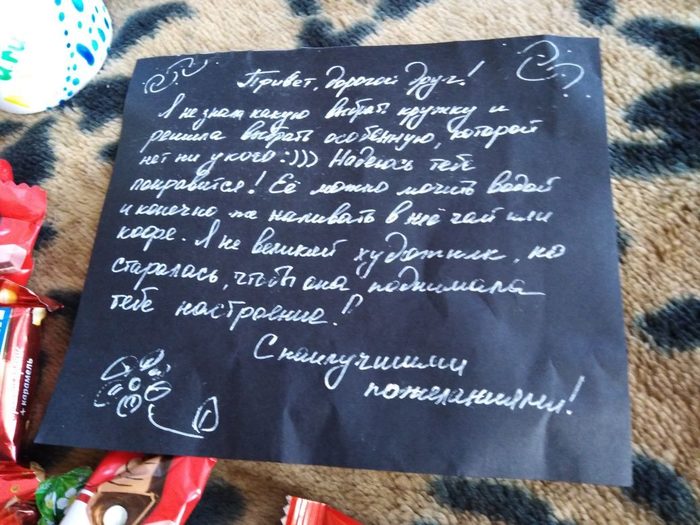 Привет, дорогой друг!
Я не знаю какую выбрать кружку и
решила выбрать особенную, которой
нет ни у кого :))) Надеюсь тебе
понравится! Её можно мочить водой
и конечно же наливать в неё чай или
кофе. Я не великий художник, но
старалась, чтобы она поднимала
тебе настроение!
С наилучшими
пожеланиями!
+ карамель